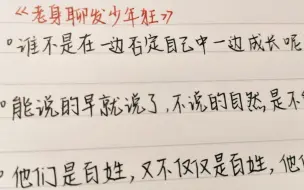 《老身聊发少年狂》
。谁不是在一边否定自己中一边成长呢
。能说的早就说了,不说的自然,是不
。他们是百姓,又不仅仅是百姓,他